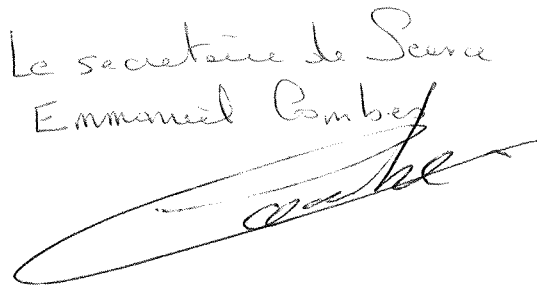 Le secretaire de Seance
Emmanuel Combes